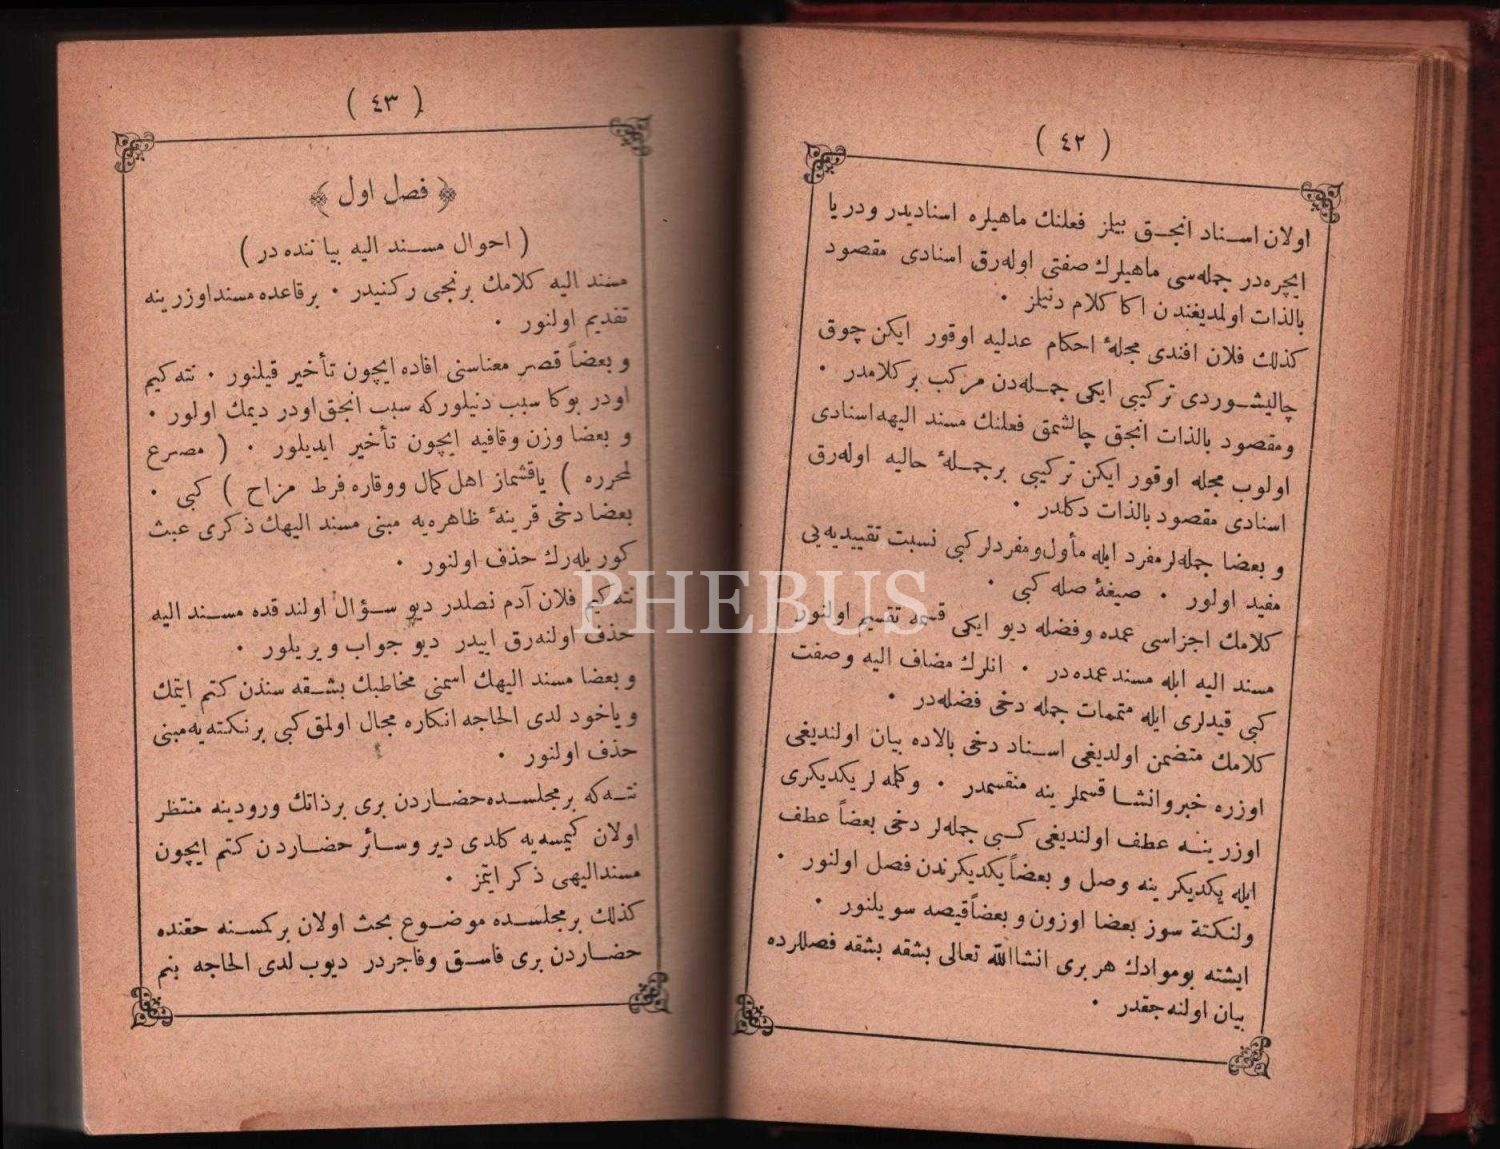 ( ٤٢ )
اولان اسناد انجق بيلز فعلنك ماهيلره اسناديدر ودريا
ايچره‌در جمله‌سى ماهيلرك صفتى اوله‌رق اسنادى مقصود
بالذات اولمديغندن اكا كلام دنيلز ٠
كذلك فلان افندى مجلهٔ احكام عدليه اوقور ايكن چوق
چاليشوردى تركيبى ايكى جمله‌دن مركب بركلامدر ٠
ومقصود بالذات انجق چالشمق فعلنك مسند اليهه اسنادى
اولوب مجله اوقور ايكن تركيبى برجملهٔ حاليه اوله‌رق
اسنادى مقصود بالذات دكلدر ٠
و بعضا جمله‌لر مفرد ايله مأول ومفردلر كبى نسبت تقييديه‌يى
مفيد اولور ٠ صيغهٔ صله كبى ٠
كلامك اجزاسى عمده وفضله ديو ايكى قسمه تقسيم اولنور
مسند اليه ايله مسند عمده‌در ٠ انلرك مضاف اليه وصفت
كبى قيدلرى ايله متممات جمله دخى فضله‌در ٠
كلامك متضمن اولديغى اسناد دخى بالاده بيان اولنديغى
اوزره خبر وانشا قسملرينه منقسمدر ٠ وكله لر يكديكرى
اوزرينه عطف اولنديغى كبى جمله‌لر دخى بعضاً عطف
ايله يكديكرينه وصل و بعضاً يكديكرندن فصل اولنور ٠
ولنكتة سوز بعضا اوزون و بعضاً قيصه سويلنور ٠
ايشته بوموادك هر برى انشاالله تعالى بشقه بشقه فصللرده
بيان اولنه‌جقدر ٠
( ٤٣ )
﴿ فصل اول ﴾
( احوال مسند اليه بياننده‌در )
مسند اليه كلامك برنجى ركنيدر ٠ برقاعده مسند اوزرينه
تقديم اولنور ٠
و بعضاً قصر معناسنى افاده ايچون تأخير قيلنور ٠ نته‌كيم
اودر بوكا سبب دنيلوركه سبب انجق اودر ديمك اولور ٠
و بعضا وزن وقافيه ايچون تأخير ايديلور ٠ ( مصرع
لمحرره ) ياقشماز اهل كمال ووقاره فرط مزاح ) كبى ٠
بعضا دخى قرينهٔ ظاهره‌يه مبنى مسند اليهك ذكرى عبث
كوريله‌رك حذف اولنور ٠
نته‌كيم فلان آدم نصلدر ديو سؤال اولندقده مسند اليه
حذف اولنه‌رق اييدر ديو جواب ويريلور ٠
و بعضا مسند اليهك اسمنى مخاطبك بشقه سندن كتم ايتمك
وياخود لدى الحاجه انكاره مجال اولمق كبى برنكته‌يه مبنى
حذف اولنور ٠
نته‌كه برمجلسده حضاردن برى برذاتك ورودينه منتظر
اولان كيمسه‌يه كلدى دير وسائر حضاردن كتم ايچون
مسند اليهى ذكر ايتمز ٠
كذلك برمجلسده موضوع بحث اولان بركمسنه حقنده
حضاردن برى فاسق وفاجردر ديوب لدى الحاجه بنم
PHEBUS